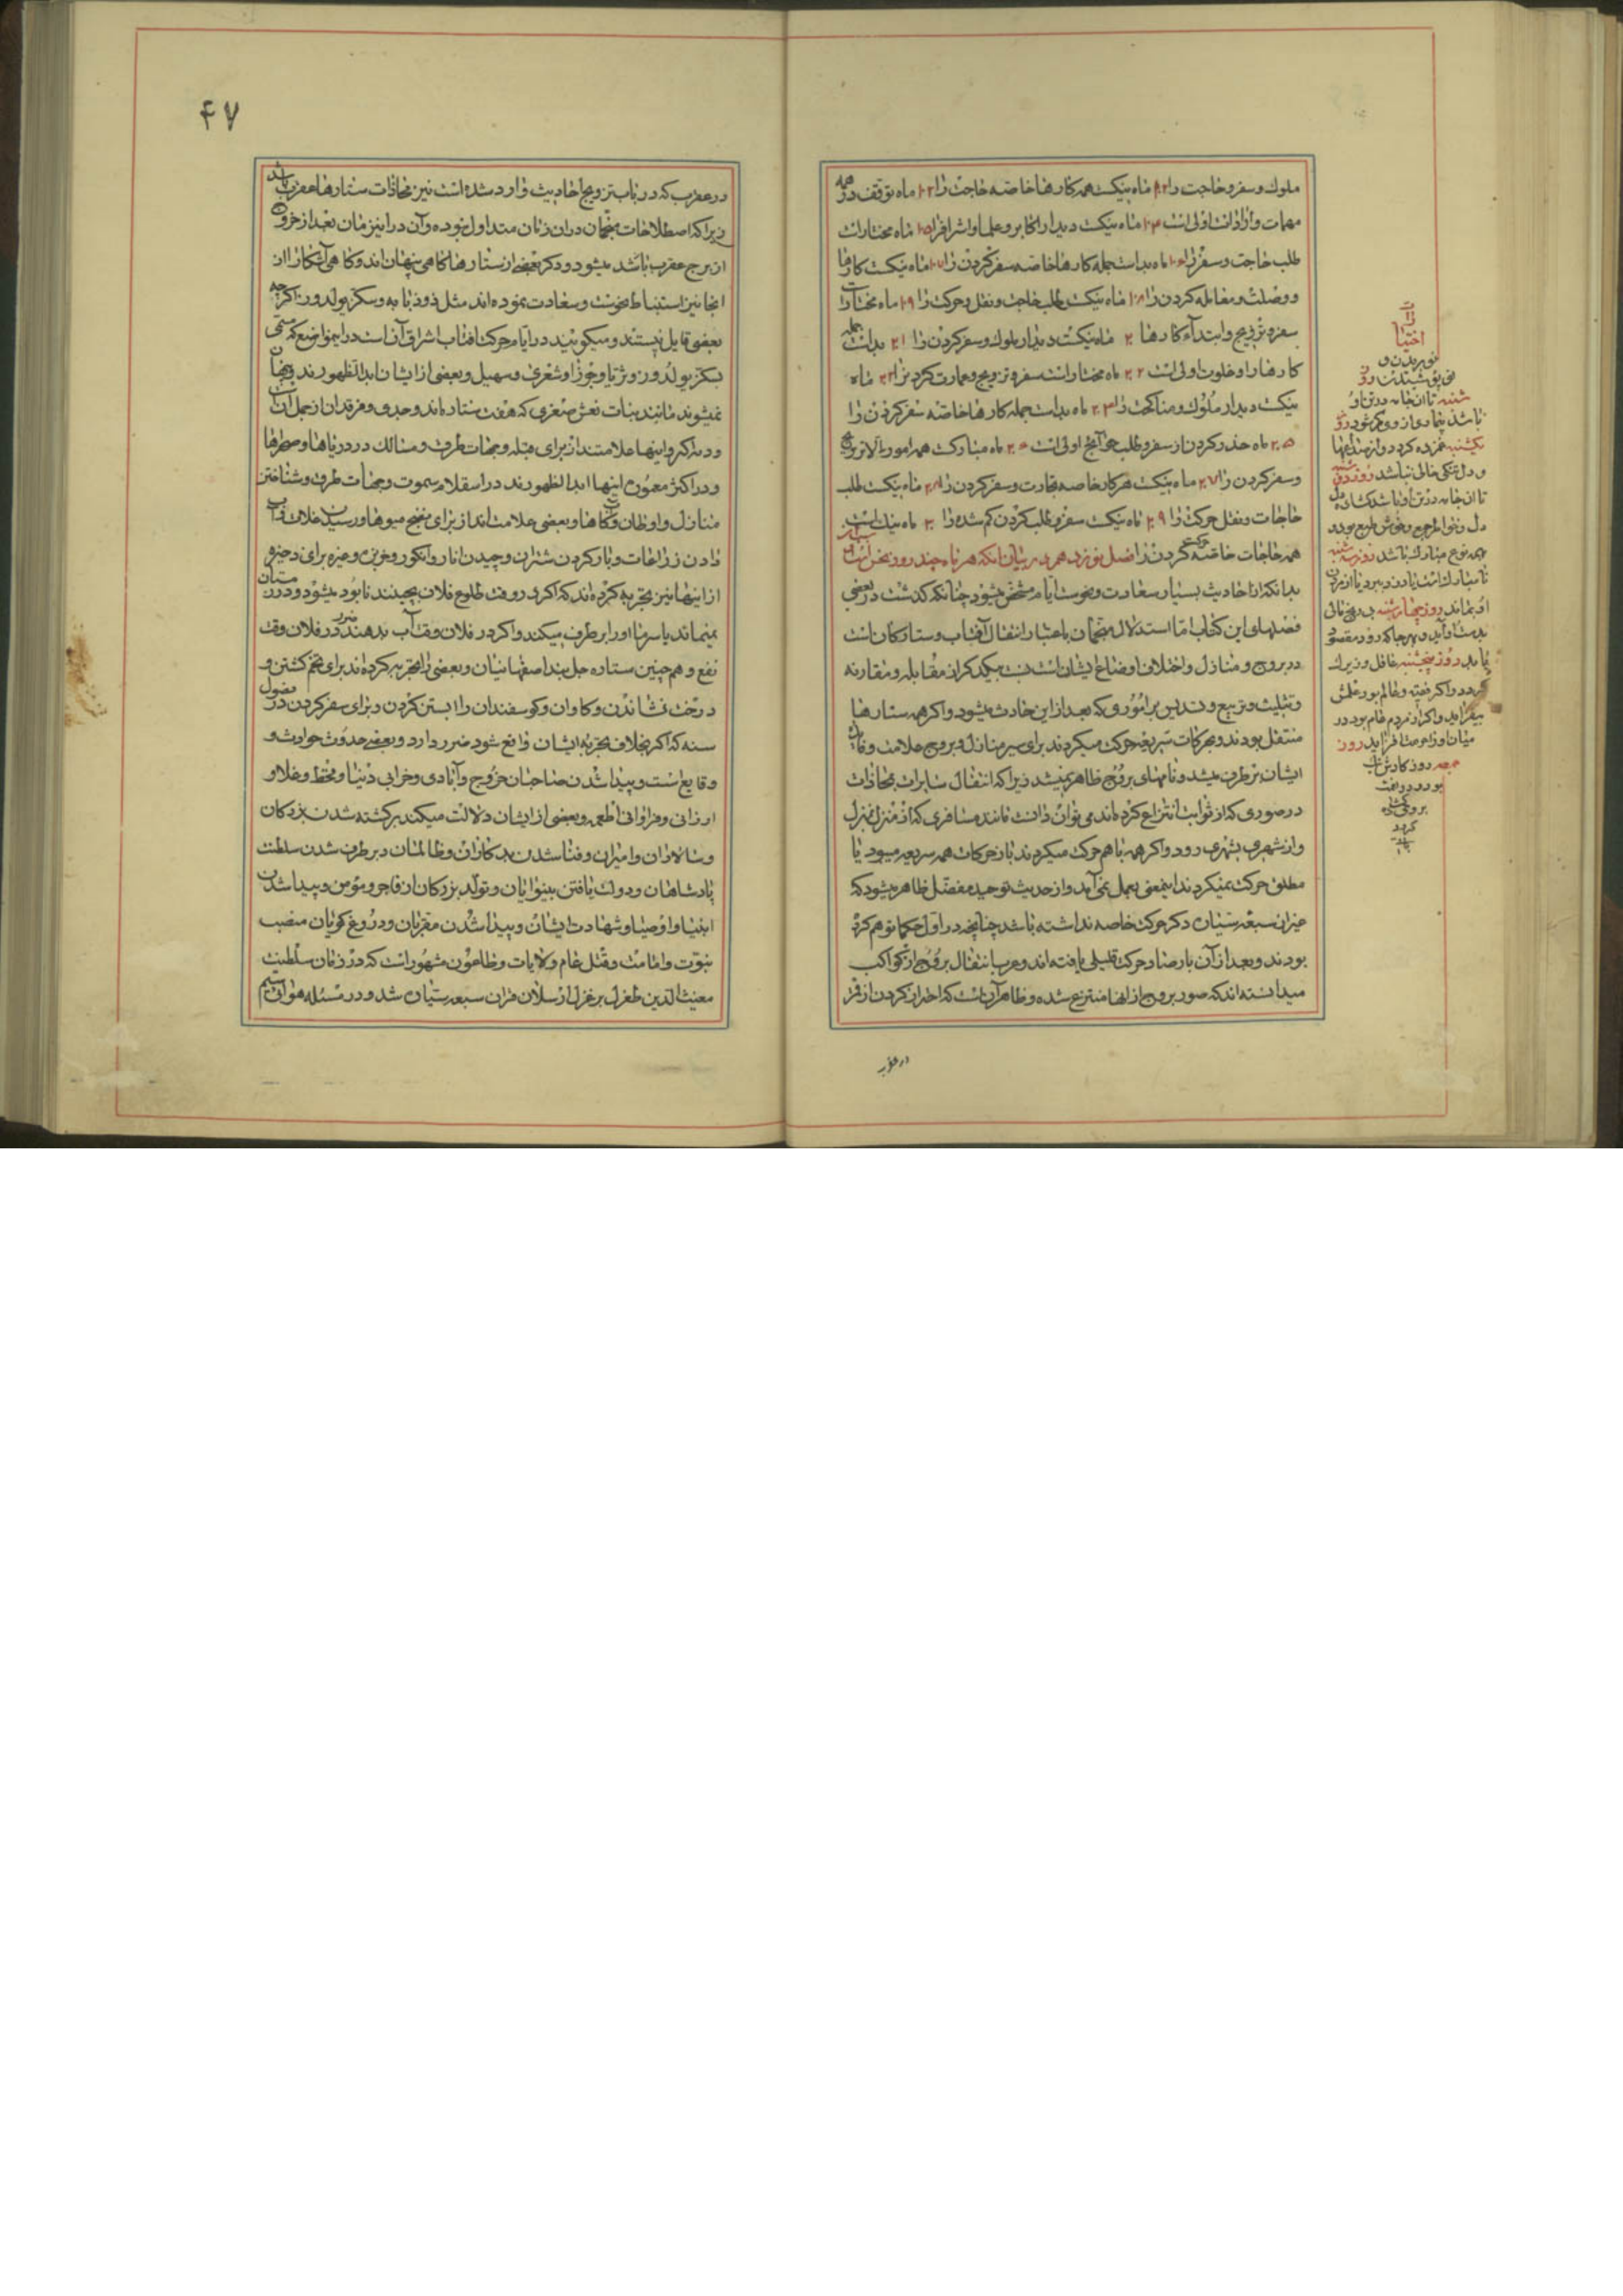 ملوك و سفر و حاجت را ۱۲ ماه نیكست همه كارها خاصه حاجت را ۱۳ ماه توقف در همه
مهمات و ارادات اولی است ۱۴ ماه نیكست دیدار اكابر و علما و اشراف را ۱۵ ماه مختار است
طلب حاجت و سفر را ۱۶ ماه بد است جمله كارها خاصه سفر كردن را ۱۷ ماه نیكست كارها
و وصلت و معامله كردن را ۱۸ ماه نیكست طلب حاجت و نقل و حركت را ۱۹ ماه مختار است
سفر و تزویج و ابتداء كارها ۲۰ ماه نیكست دیدار ملوك و سفر كردن را ۲۱ بد است جمله
كارها را و خلوت اولی است ۲۲ ماه مختار است سفر و تزویج و عمارت كردن را ۲۳ ماه
نیكست دیدار ملوك و مناكحت را ۲۴ ماه بد است جمله كارها خاصه سفر كردن را
۲۵ ماه حذر كردن از سفر و طلب حوائج اولی است ۲۶ ماه مباركست همه امور را الا تزویج
و سفر كردن را ۲۷ ماه نیكست هر كار خاصه تجارت و سفر كردن را ۲۸ ماه نیكست طلب
حاجات و نقل حركت را ۲۹ ماه نیكست سفر و طلب كردن كم شده را ۳۰ ماه نیك است
همه حاجات خاصه حركت كردن را فصل نوزدهم در بیان آنكه هر ماه چند روز نحس است
بدانكه از احادیث بسیار سعادت و نحوست ایام مشخص میشود چنانكه گذشت در بعضی
فصلهای این كتاب اما استدلال منجمان باعتبار انتقال آفتاب و ستاركان است
در بروج و منازل و اختلاف اوضاع ایشان است نسبت بیكدیگر از مقابله و مقارنه
و تثلیث و تربیع و تسدیس بر اموری كه بعد از این حادث میشود و اگر همه ستارها
منتقل بودند و بحركات سریعه حركت میكردند برای سیر منازل و بروج علامت و
ایشان بر طرف میشد و نامهای بروج ظاهر نمیشد زیرا كه انتقال سایرات بمحاذات
در صوری كه از ثوابت انتزاع كرده‌اند می‌توان دانست مانند مسافری كه از منزل بمنزل
و از شهری بشهری رود و اگر همه باهم حركت میكردند با حركات همه سریعه میبود یا
مطلق حركت نمیكردند اینمعنی بعمل نمی‌آمد و از حدیث توحید مفضل ظاهر میشود كه
غیر از سبعه سیاره دیگر حركت خاصه نداشته باشد چنانچه در اول حكما توهم كرده
بودند و بعد از آن بارصاد حركت قلیلی یافته‌اند و عرب انتقال بروج از كواكب
میدانسته‌اند كه صور بروج از آنها منتزع شده و ظاهر آن است كه احتراز كردن از قمر
در عقرب
اختیارات
نو بریدن و
نو پوشیدنست روز
شنبه تا آن جامه در تن او
باشد بیمار و رنجور شود روز
یكشنبه غمزده گردد و از غمها
و دل‌تنگی خالی نباشد روز دوشنبه
تا آن جامه در تن او باشد گشاده
دل و خوش بود
بهمه نوع مبارك باشد روز سه شنبه
او بماند روز چهارشنبه
بدست او آید و هر جا كه رود مقصود
یابد روز پنجشنبه عاقل و زیرك
گردد و اگر فقیه و عالم بود علمش
بیفزاید و اگر از مردم عام بود در
میان مردم افزاید روز
جمعه روز كارش نیك
بود و دولت
برو گشاده
گردد
۴۷
در عقرب كه در باب تزویج احادیث وارد شده است نیز محاذات ستارهای عقرب باشد
زیرا كه اصطلاحات منجمان در آن زمان متداول نبوده و آن در این زمان بعد از خروج
از برج عقرب باشد میشود و دیگر بعضی از ستارها گاهی پنهان‌اند و گاهی آشكارا از
اینجا نیز استنباط نحوست و سعادت نموده‌اند مثل ذو ذنابه و سكز یولدوز اگر چه
بعضی قایل نیستند و میگویند در ایام حركت آفتاب اشراق آفتاب است در این مواضع كه مسمی
بسكز یولدوز و ثریا و جوزا و شعری و سهیل و بعضی از ایشان ابدا لظهورند و پنهان
نمیشوند مانند بنات نعش صغری كه هفت ستاره‌اند و جدی و فرقدان از جمله آن
و دب اكبر و اینها علامتند از برای قبله و جهات طرق و مسالك در دریاها و صحراها
و در اكثر معموره اینها ابدا لظهورند در اسقلام سموت و جهات طرق و شناختن
منازل و اوطان و گاهها و بعضی علامت‌اند از برای نضج میوها و رسیدن غلات و آب
دادن زراعات و بار كردن شتران و چیدن انار و انگور و خربزه و غیره برای ذخیره
از اینها نیز تجربه كرده‌اند كه اگر در وقت طلوع فلان بچینند نابود میشود و در زمستان
نمیماند یا سرما او را بر طرف میكند و اگر در فلان وقت آب بدهند ضرر در فلان وقت
نفع و همچنین ستاره جل بند اصفهانیان و بعضی را تجربه كرده‌اند برای تخم كشتن و
درخت نشاندن و گاوان و گوسفندان را ابستن كردن و برای سفر كردن در فصول
سنه كه اگر بخلاف تجربه ایشان واقع شود ضرر دارد و بعضی حدوث حوادث و
وقایع است و پیدا شدن صاحبان خروج و آبادی و خرابی دنیا و قحط و غلا و
ارزانی و فراوانی اطعمه و بعضی از ایشان دلالت میكند بر كشته شدن بزرگان
و سالاران و امیران و فنا شدن بدكاران و ظالمان و بر طرف شدن سلطنت
پادشاهان و دولت یافتن بینوایان و تولد بزرگان از فاجر و مؤمن و پیدا شدن
انبیا و اوصیا و شهادت ایشان و پیدا شدن مقربان و دروغ‌گویان منصب
نبوت و امامت و قتل عام ولایات و طاعون مشهور است كه در زمان سلطنت
مغیث الدین طغرل بن طغرل ارسلان قران سبعه سیاره شد و در مسئله